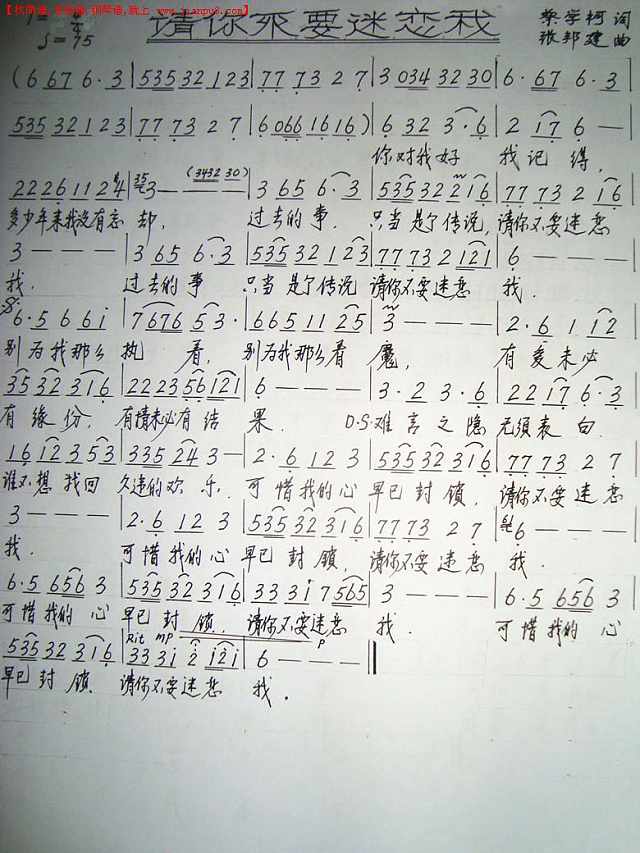 【找歌谱,就上 www.jianpu8.com】
请你不要迷恋我
柴学柯 词
张邦建 曲
J=75
(6 67 6·3 | 535 32 123 | 77 73 2 7 | 3 034 32 30 | 6·67 6·3 |
535 32 123 | 77 73 2 7 | 6 066 16 16) | 6 32 3·6 | 2 17 6 — |
你对我好 我记得,
22 26 112 24 | 3 — — (3432 30) | 3 65 6·3 | 535 32 216 | 77 73 2 16 |
多少年来我没有忘却, 过去的事, 只当是个传说,请你不要迷恋
3 — — — | 3 65 6·3 | 535 32 123 | 77 73 2 121 | 6 — — — |
我. 过去的事 只当是个传说 请你不要迷恋 我.
6·5 6 6i | 7676 53· | 665 11 25 | 3 — — — | 2·6 1 12 |
别为我那么执着, 别为我那么着魔, 有爱未必
35 32 316 | 22 23 56 121 | 6 — — — | 3·2 3·6 | 22 17 6·3 |
有缘份, 有情未必有结果. D.S.难言之隐 无须表白.
16 123 53 | 335 24 3 — | 2·6 12 3 | 535 32 316 | 77 73 2 7 |
谁不想找回 久违的欢乐. 可惜我的心 早已封锁, 请你不要迷恋
3 — — — | 2·6 12 3 | 535 32 316 | 77 73 2 7 | 6 — — — |
我. 可惜我的心 早已封锁, 请你不要迷恋 我.
6·5 656 3 | 535 32 316 | 33 3i 7 565 | 3 — — — | 6·5 656 3 |
可惜我的心 早已封锁, 请你不要迷恋 我. 可惜我的心
Rit mp p
535 32 316 | 33 3i 2 i2i | 6 — — ‖
早已封锁. 请你不要迷恋 我.